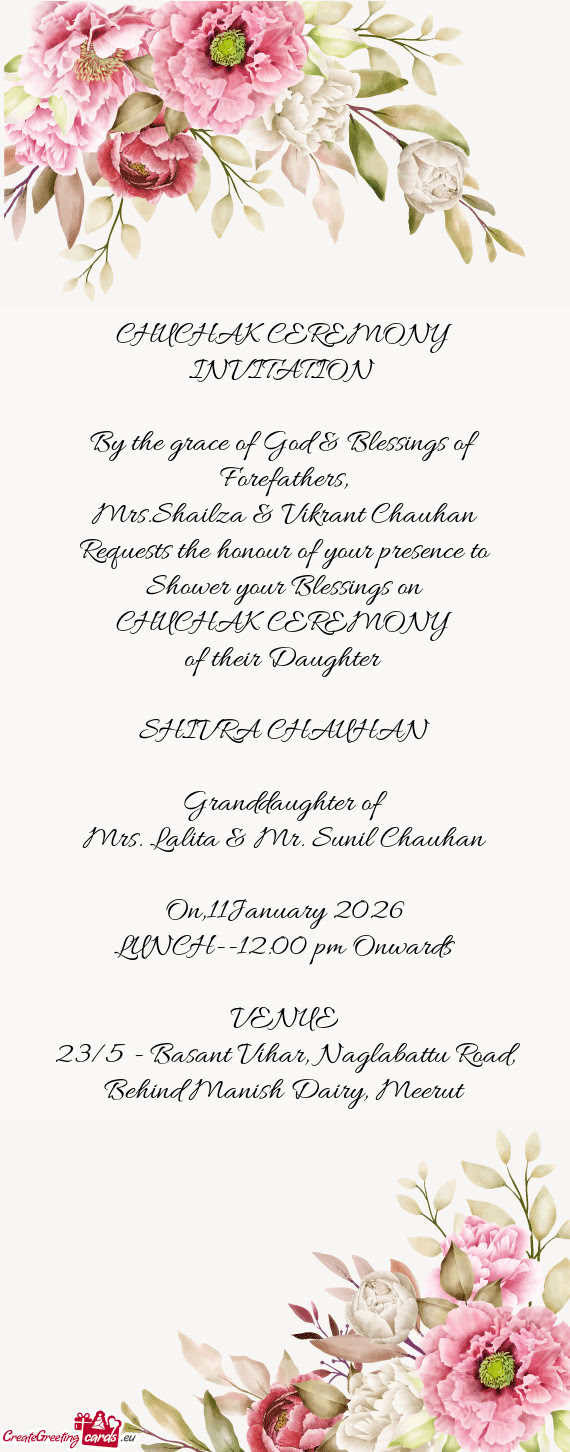 CHUCHAK CEREMONY
INVITATION
By the grace of God & Blessings of
Forefathers,
Mrs.Shailza & Vikrant Chauhan
Requests the honour of your presence to
Shower your Blessings on
CHUCHAK CEREMONY
of their Daughter
SHIVRA CHAUHAN
Granddaughter of
Mrs. Lalita & Mr. Sunil Chauhan
On,11January 2026
LUNCH--12:00 pm Onwards
VENUE
23/5 - Basant Vihar, Naglabattu Road,
Behind Manish Dairy, Meerut
CreateGreeting cards .eu